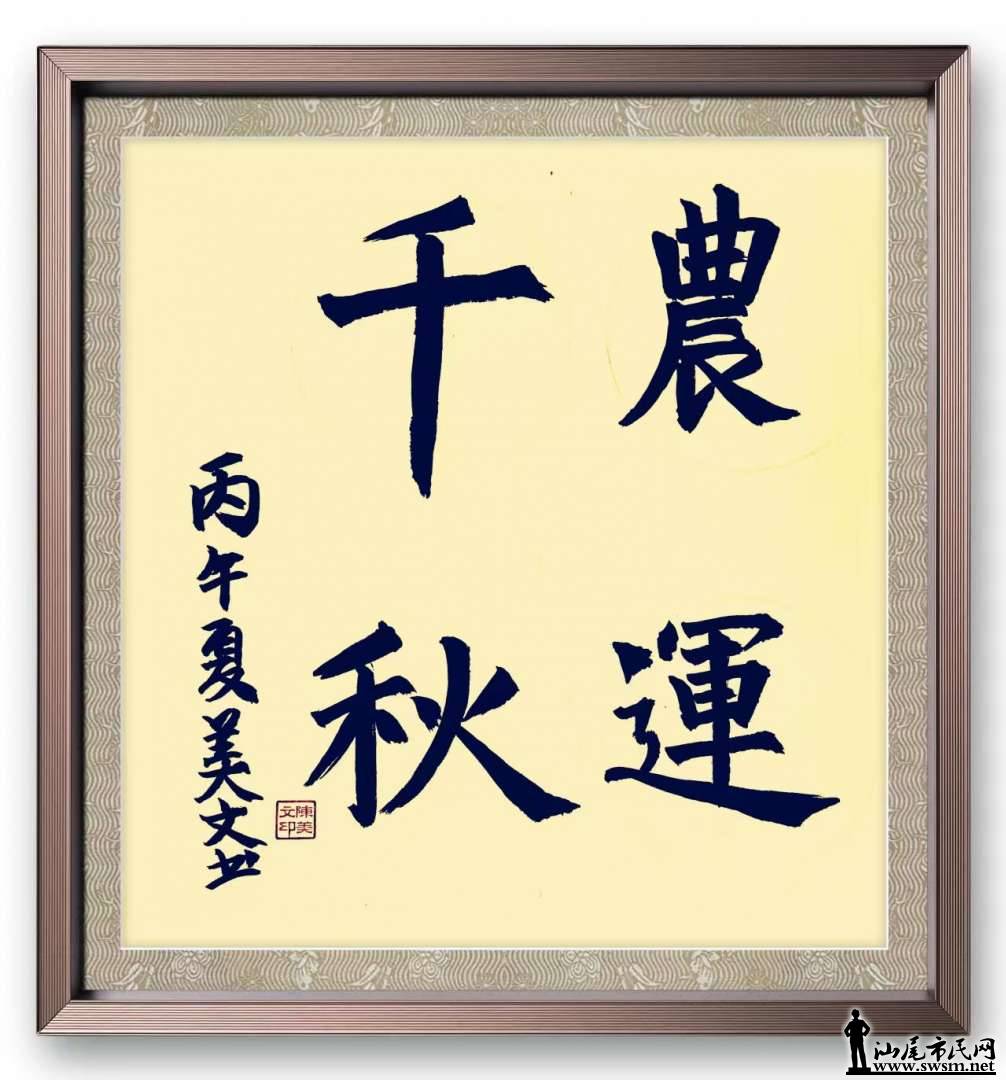 農運
千秋
丙午夏美文书
陳美
文印
汕尾市民网
www.swsm.net